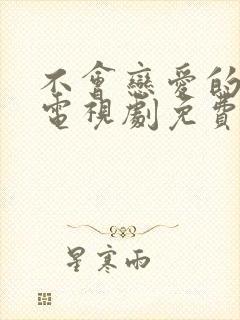 不會戀愛的
電視劇免費
星寒雨